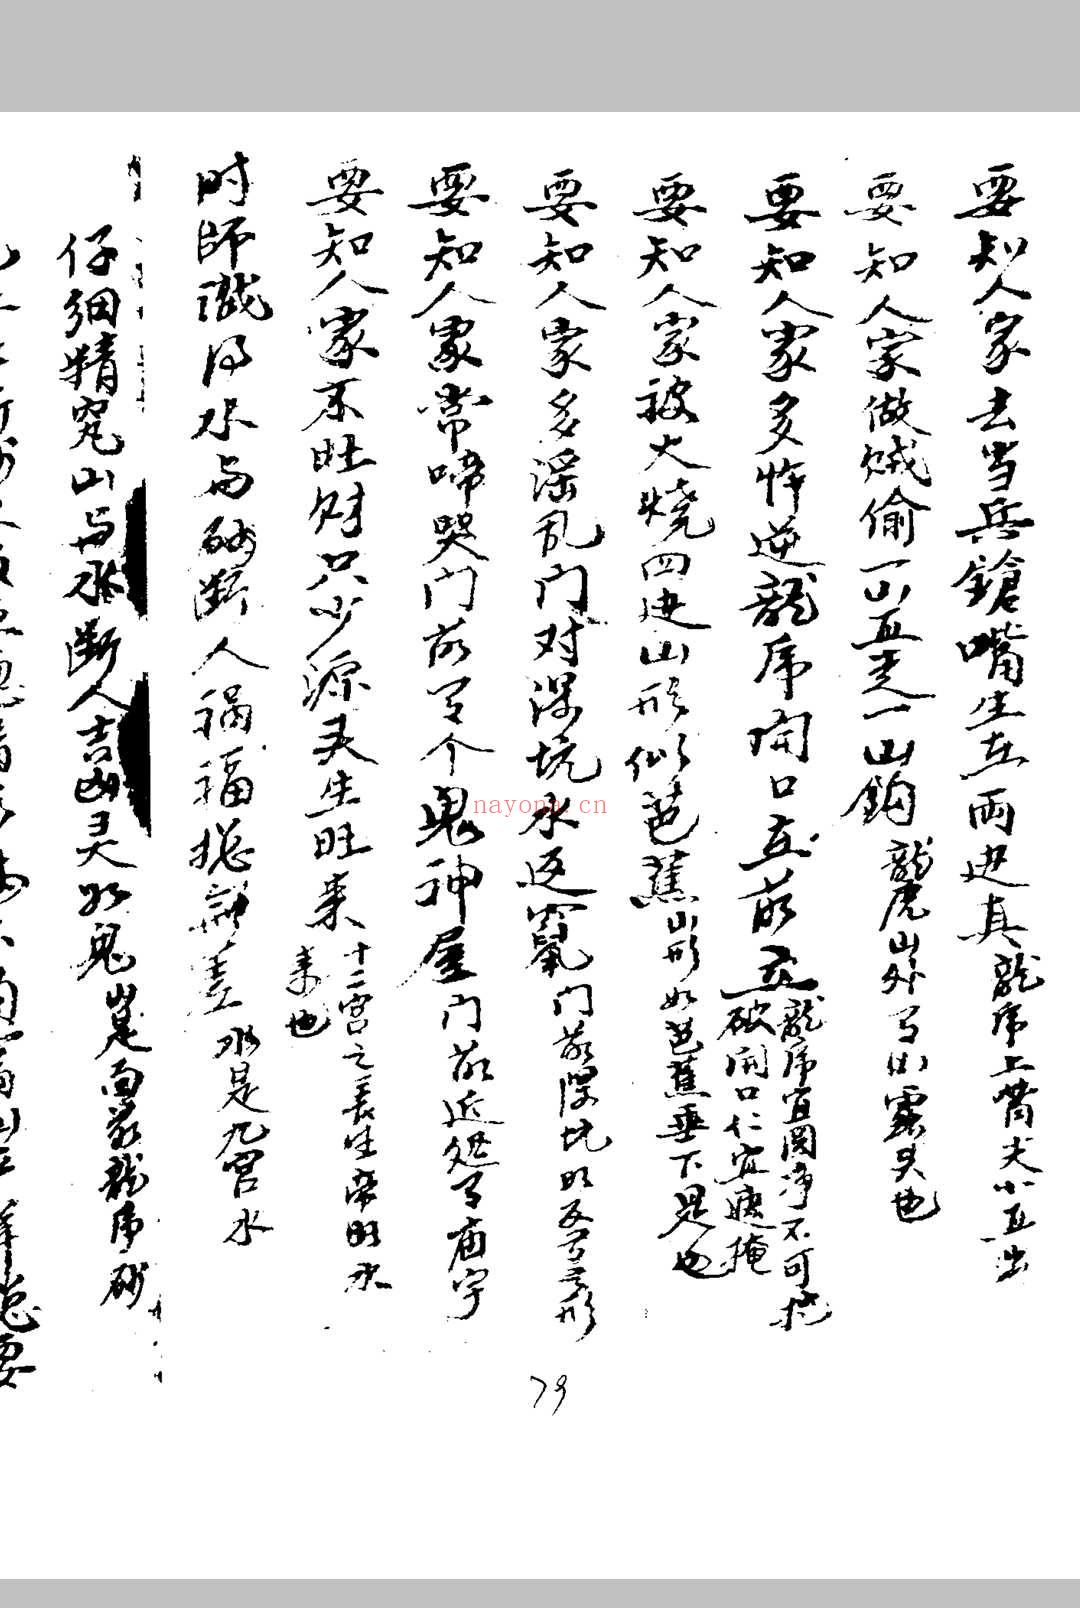 要知人家去当兵鎗嘴生在两边真龍虎上嘴尖小直出
要知人家做贼偷一山直走一山鈎龍虎山外有山露头也
要知人家多忤逆龍虎開口在前立龍虎宜圆净不可
破開口仁宜
要知人家被火燒四边山形似芭蕉山形如芭蕉垂下是也
要知人家多淫乱门对深坑水返竄门前深坑
要知人家常啼哭门前有个鬼神屋门前近处有庙宇
要知人家不旺财只少源头生旺来十二宫之長生帝旺水
来也
时師識得水与砂断人祸福揔無差水是九宫水
仔细精究山与水断人吉凶灵如鬼山是面前龍虎砂
79
nayona.cn